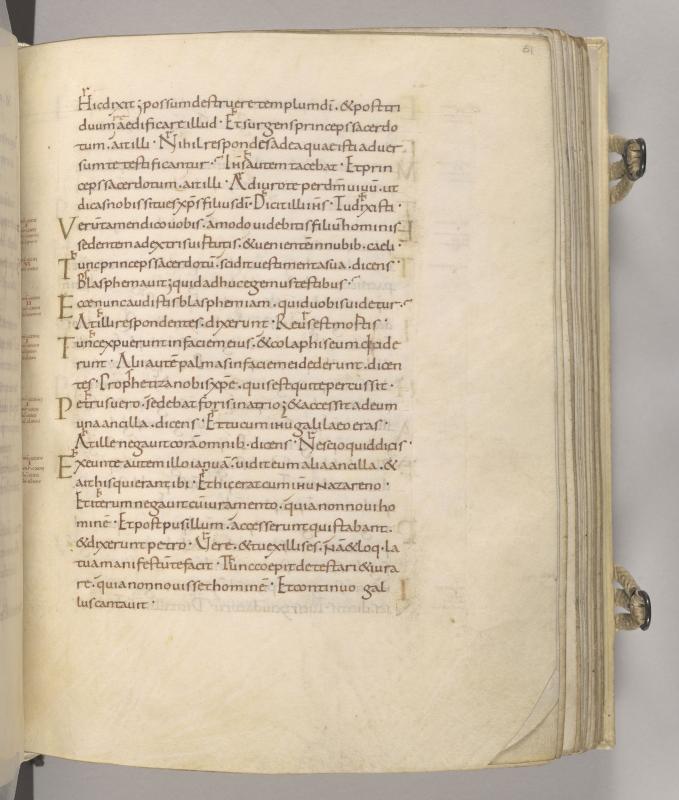 61
Hic dixit; possum destruere templum dī. & post tri
duum aedificare illud · Et surgens princeps sacerdo
tum. ait illi · Nihil respondes ad ea quae isti aduer
sum te testificantur · Ihs autem tacebat · Et prin
ceps sacerdotum. ait illi · Adiuro te per dm̄ uiuū. ut
dicas nobis si tu es xp̄s filius dī · Dicit illi ihs · Tu dixisti ·
Verūtamen dico uobis. amodo uidebitis filiū hominis
sedentem a dextris uirtutis. & uenientē in nubib. caeli ·
Tunc princeps sacerdotū. scidit uestimenta sua. dicens ·
Blasphemauit; quid adhuc egemus testibus ·
Ecce nunc audistis blasphemiam. quid uobis uidetur.
At illi respondentes. dixerunt · Reus est mortis ·
Tunc expuerunt in faciem eius. & colaphis eum ceciderunt · Alii autē palmas in faciem ei dederunt. dicen
tes · Prophetiza nobis xp̄e. quis est qui te percussit ·
Petrus uero. sedebat foris in atrio; & accessit ad eum
una ancilla. dicens · Et tu cum ihū galilaeo eras ·
At ille negauit corā omnib. dicens · Nescio quid dicis ·
Exeunte autem illo ianuā. uidit eum alia ancilla. &
ait his qui erant ibi · Et hic erat cum ihū nazareno ·
Et iterum negauit cū iuramento. quia non noui ho
minē · Et post pusillum. accesserunt qui stabant.
& dixerunt petro · Vere. & tu ex illis es. Nā & loq. la
tua manifestū te facit · Tunc coepit detestari & iura
re. quia non nouisset hominē · Et continuo gal
lus cantauit ·